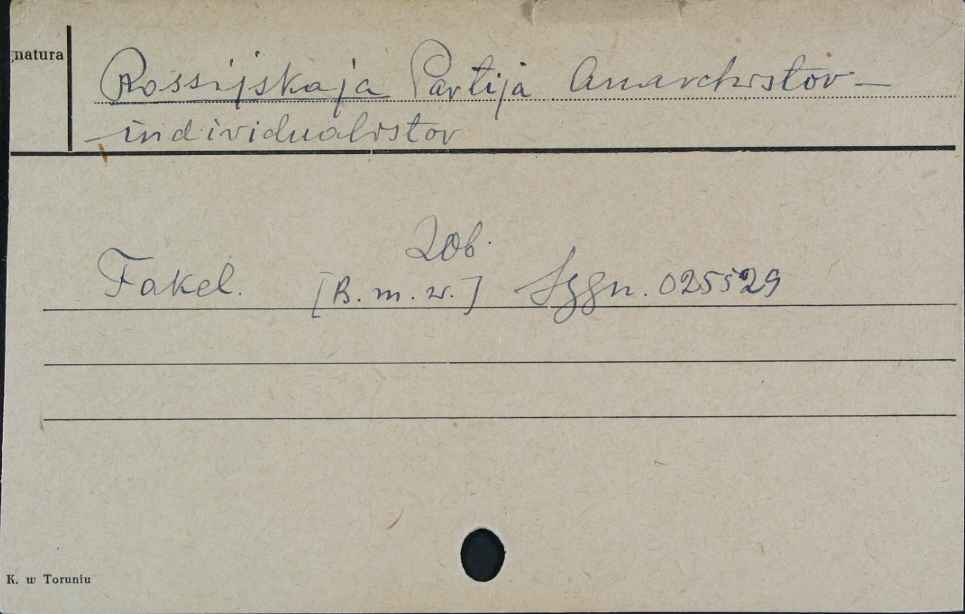 gnatura
Rossijskaja Partija Anarchistov-
-individualistov
Zob.
Fakel. [B.m.w.] Sygn. 025529
K. w Toruniu